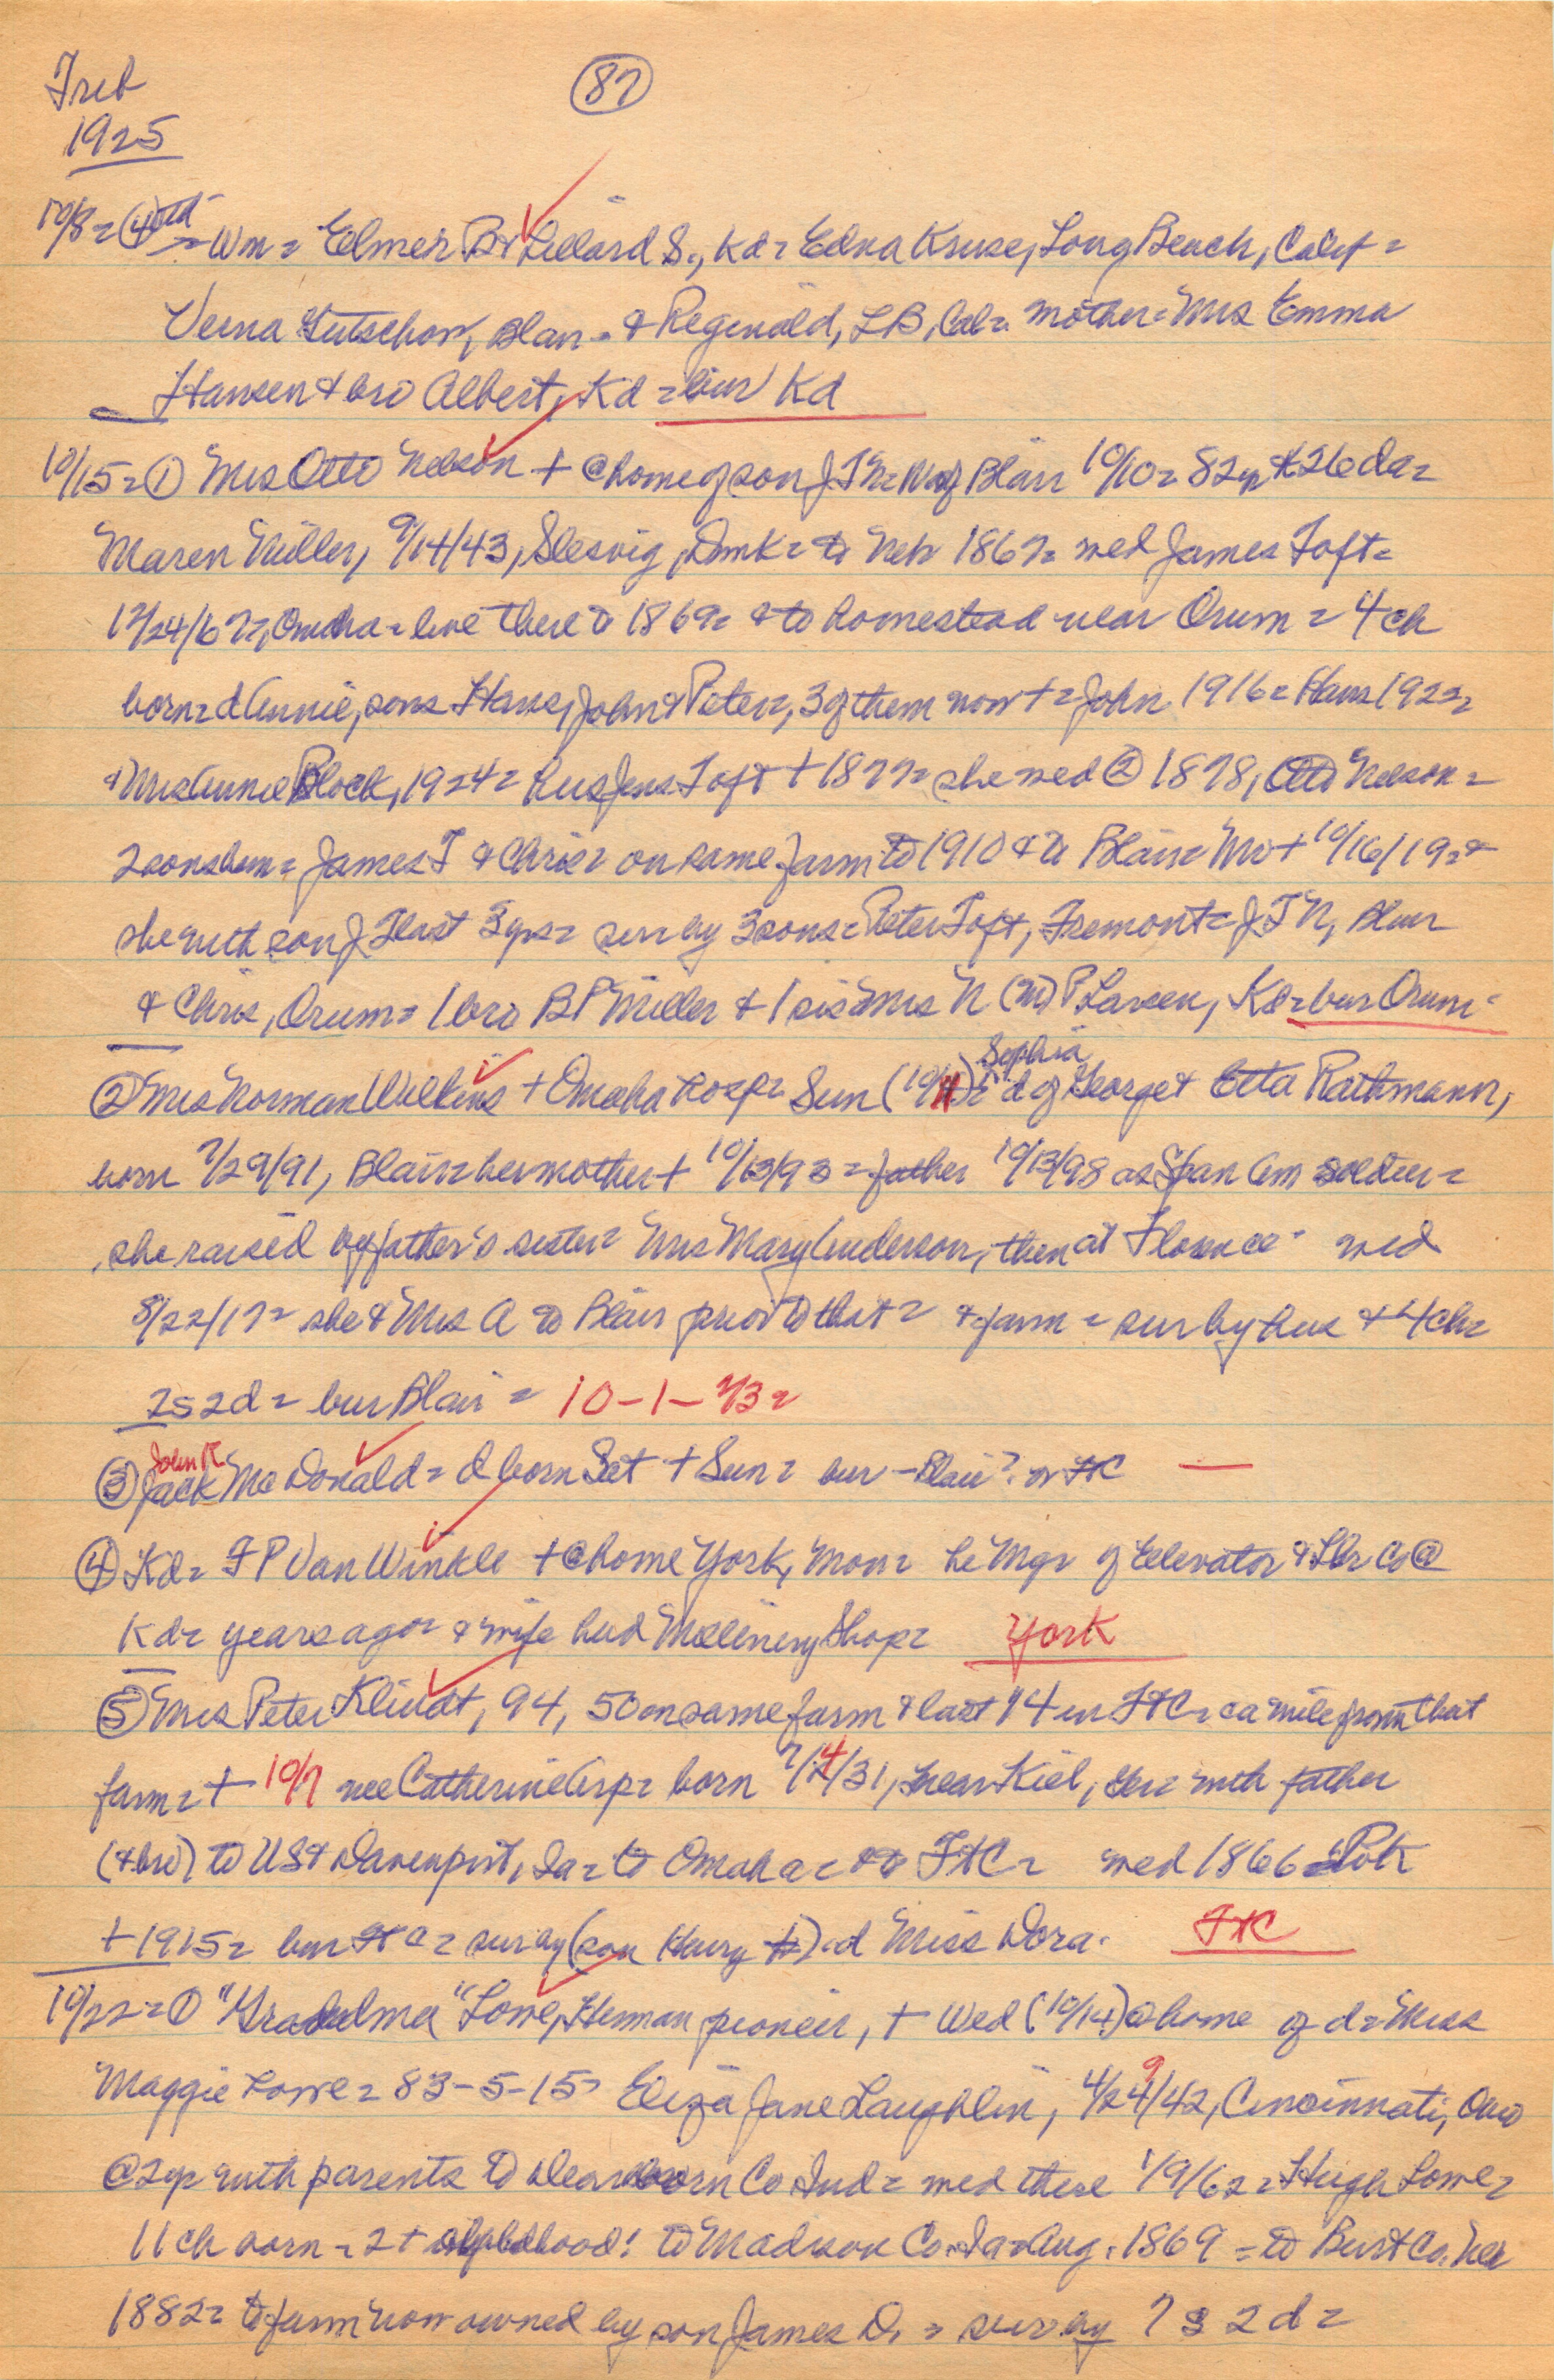 Trib
87
1925
10/8 = (4) = Wm = Elmer B + Lillard S., Kd = Edna Kruse, Long Beach, Calif =
Verna Gutschow, Blair = & Reginald, LB, Cal = mother = Mrs Emma
Hansen & bro Albert, Kd = bur Kd
10/15 = (1) Mrs Otto Nelson + @ home of son J T N = of Blair 10/10 = 82 yr & 26 da =
Maren Miller, 9/14/43, Slesvig, Dmk = to Neb 1867 = wed James Toft =
12/24/67 =, Omaha = live there to 1869 = & to homestead near Orum = 4 ch
born = d Annie, sons Hans, John & Peter =, 3 of them now + = John 1916 = Hans 1922 =
& Mrs Annie Block, 1924 = Hus Jens Toft + 1877 = she wed (2) 1878, Otto Nelson =
2 sons born = James T & Chris = on same farm to 1910 & to Blair = Mr + 10/16/192
she with son J T last 3 yrs = surv by 3 sons = Peter Toft, Fremont = J T N, Blair
& Chris, Orum = 1 bro B P Miller & 1 sis = Mrs N (M) P Larsen, Kd = bur Orum =
Sophia
(2) Mrs Norman Wilkins + Omaha hosp = Sun (10/11) = d of George & Etta Rathmann,
born 7/29/91, Blair = her mother + 10/13/93 = father 10/13/98 as Span Am soldier =
she raised by father's sister = Mrs Mary Anderson, then at Florence = wed
8/22/17 = she & Mrs A to Blair prior to that = & farm = sur by hus & 4 ch =
2s 2d = bur Blair = 10-1-43 =
John R
(3) Jack McDonald = d born Sat + Sun = bur - Blair? or FtC —
(4) Kd = F P Van Winkle + @ home York, Mon = he Mgr of Elevator & Lbr Co @
Kd = years ago = & wife had Millinery Shop = York
(5) Mrs Peter Klindt, 94, 50 on same farm & last 14 in FtC = ca mile from that
farm = + 10/7 nee Catherine Arp = born 7/4/31, near Kiel, Ger = with father
(& bro) to US & Davenport, Ia = to Omaha = & to FtC = wed 1866 = PK
+ 1915 = bur FtC = sur by (son Henry +) = d Miss Dora. FtC
10/22 = (1) "Grandma" Lowe, Herman pioneer, + Wed (10/14) @ home of d = Miss
Maggie Lowe = 83-5-15 = Eliza Jane Laughlin, 4/29/42, Cincinnati, Ohio
@ 2 yr with parents to Dearborn Co Ind = wed there 1/9/62 = Hugh Lowe =
11 ch born = 2 + childhood! to Madison Co. Ia = Aug. 1869 = to Burt Co. Neb
1882 = to farm now owned by son James D. = surv by 7 s 2 d =